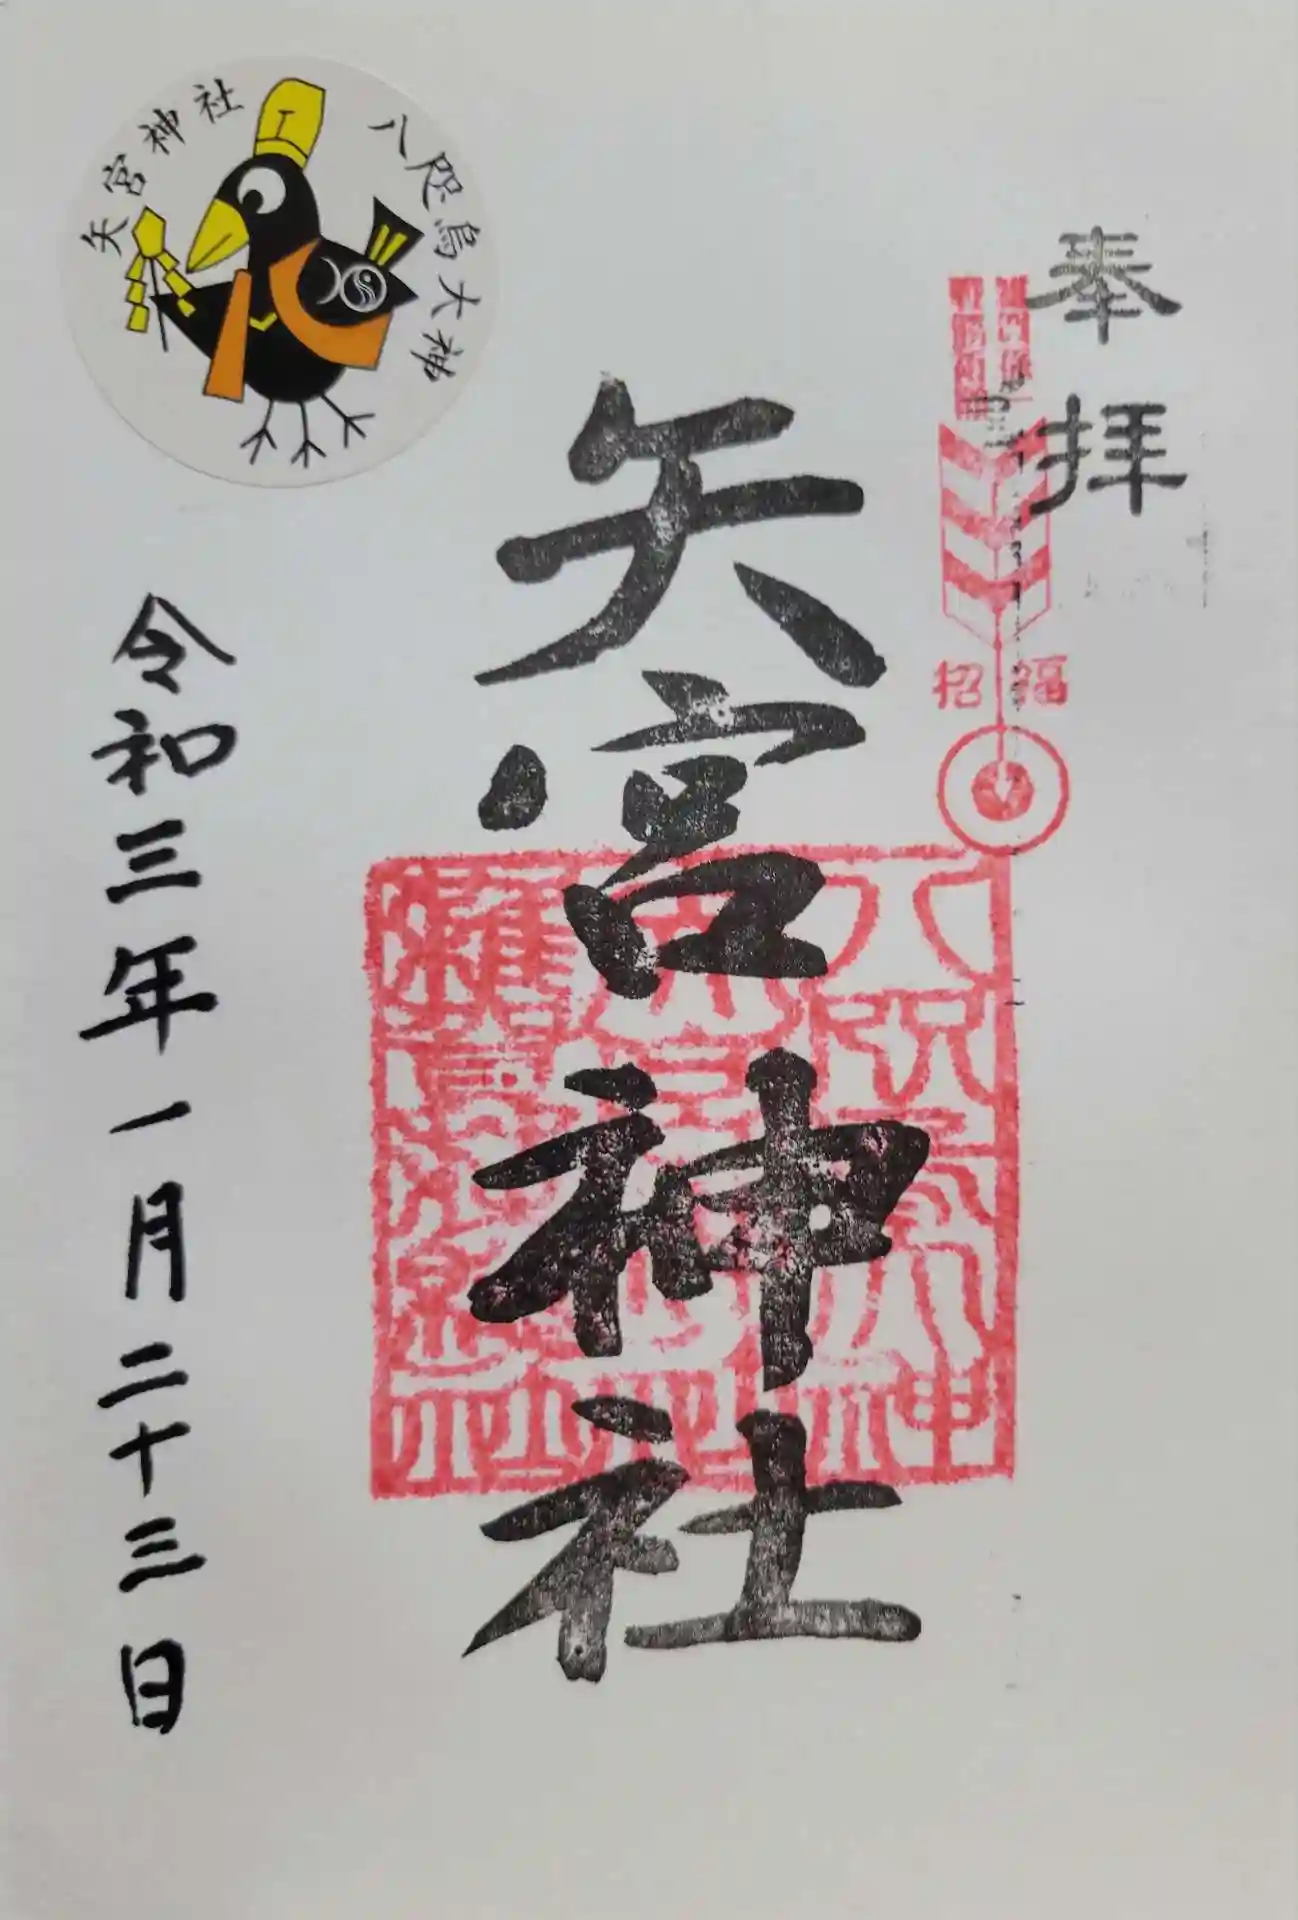 奉拝
招福
矢宮神社
八咫烏大神
矢宮神社
令和三年一月二十三日